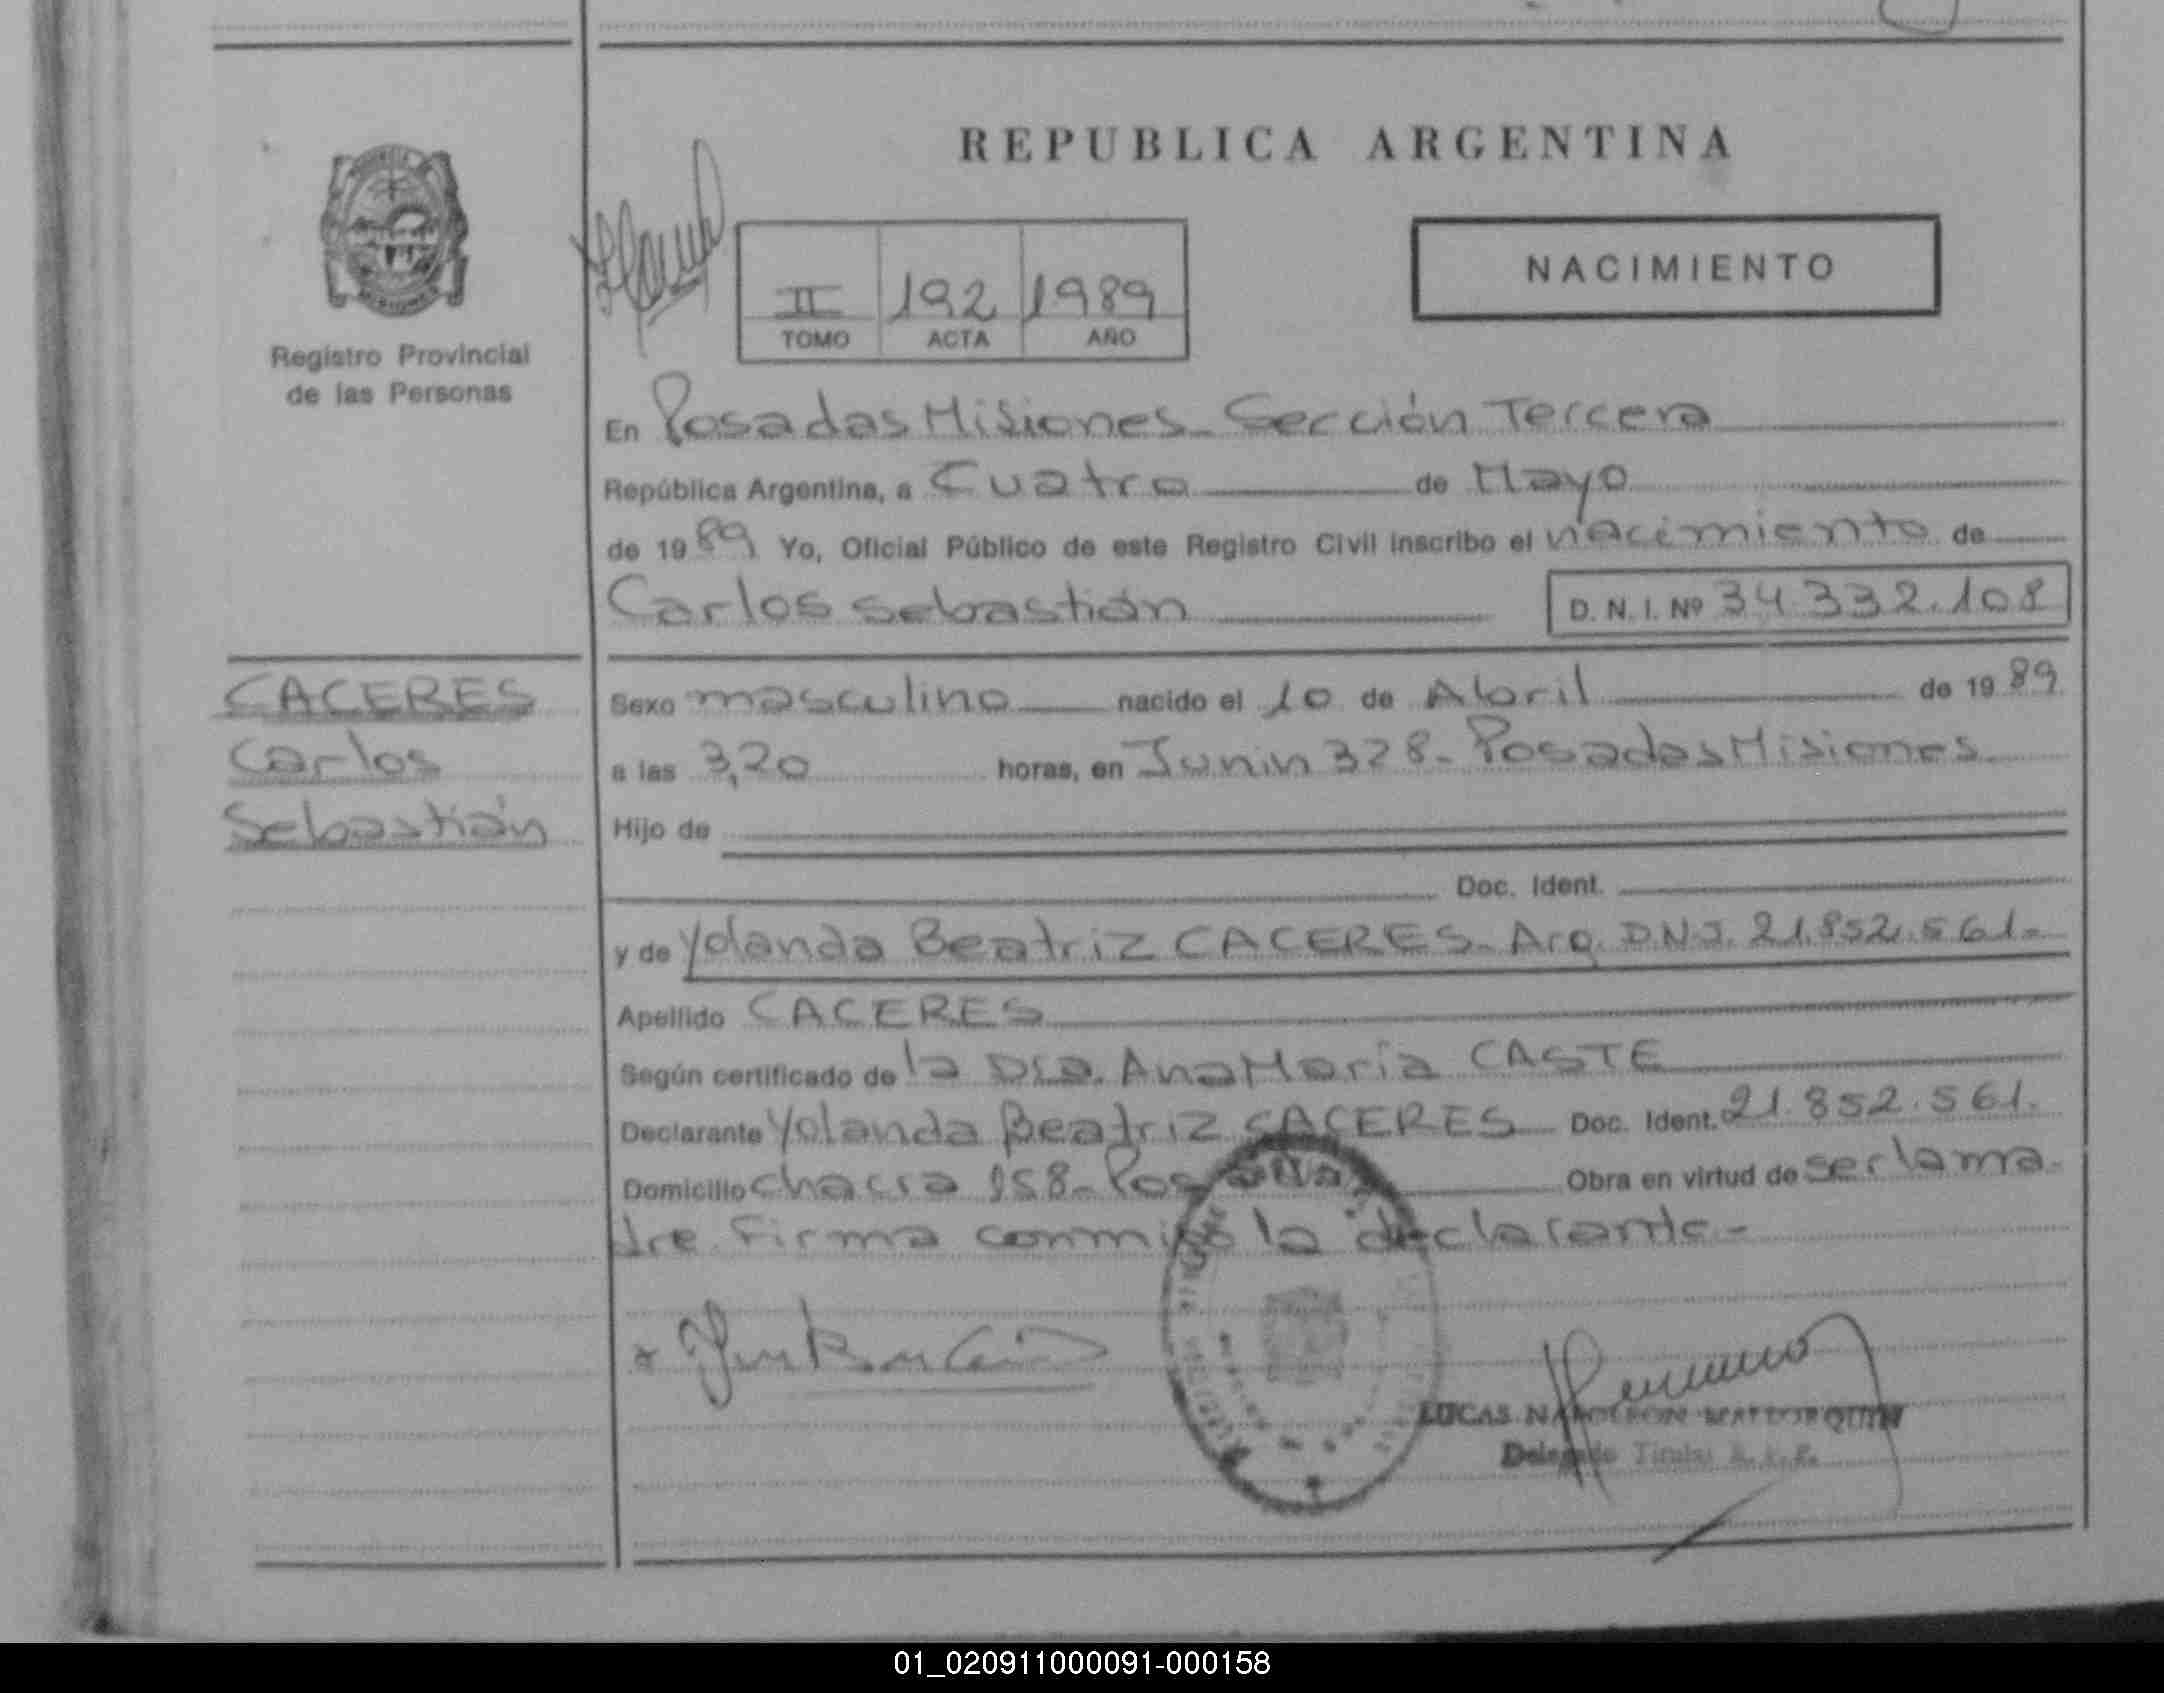 REPUBLICA ARGENTINA
NACIMIENTO
II 192 1989
TOMO ACTA AÑO
Registro Provincial
de las Personas
En Posadas Misiones - Sección Tercera
República Argentina, a Cuatro de Mayo
de 1989 Yo, Oficial Público de este Registro Civil inscribo el nacimiento de
Carlos Sebastián D. N. I. Nº 34.332.108
CACERES
Carlos
Sebastián
Sexo masculino nacido el 10 de Abril de 1989
a las 3,20 horas, en Junin 328 - Posadas Misiones
Hijo de
Doc. Ident.
y de Yolanda Beatriz CACERES - Arg. D.N.I. 21.852.561.-
Apellido CACERES
Según certificado de la Dra. Ana María CASTE
Declarante Yolanda Beatriz CACERES Doc. Ident. 21.852.561.
Domicilio chacra 158 - Posadas Obra en virtud de ser la ma-
dre firma conmigo la declarante -
LUCAS NAPOLEON
Delegado Titular R. P. P.
01_020911000091-000158